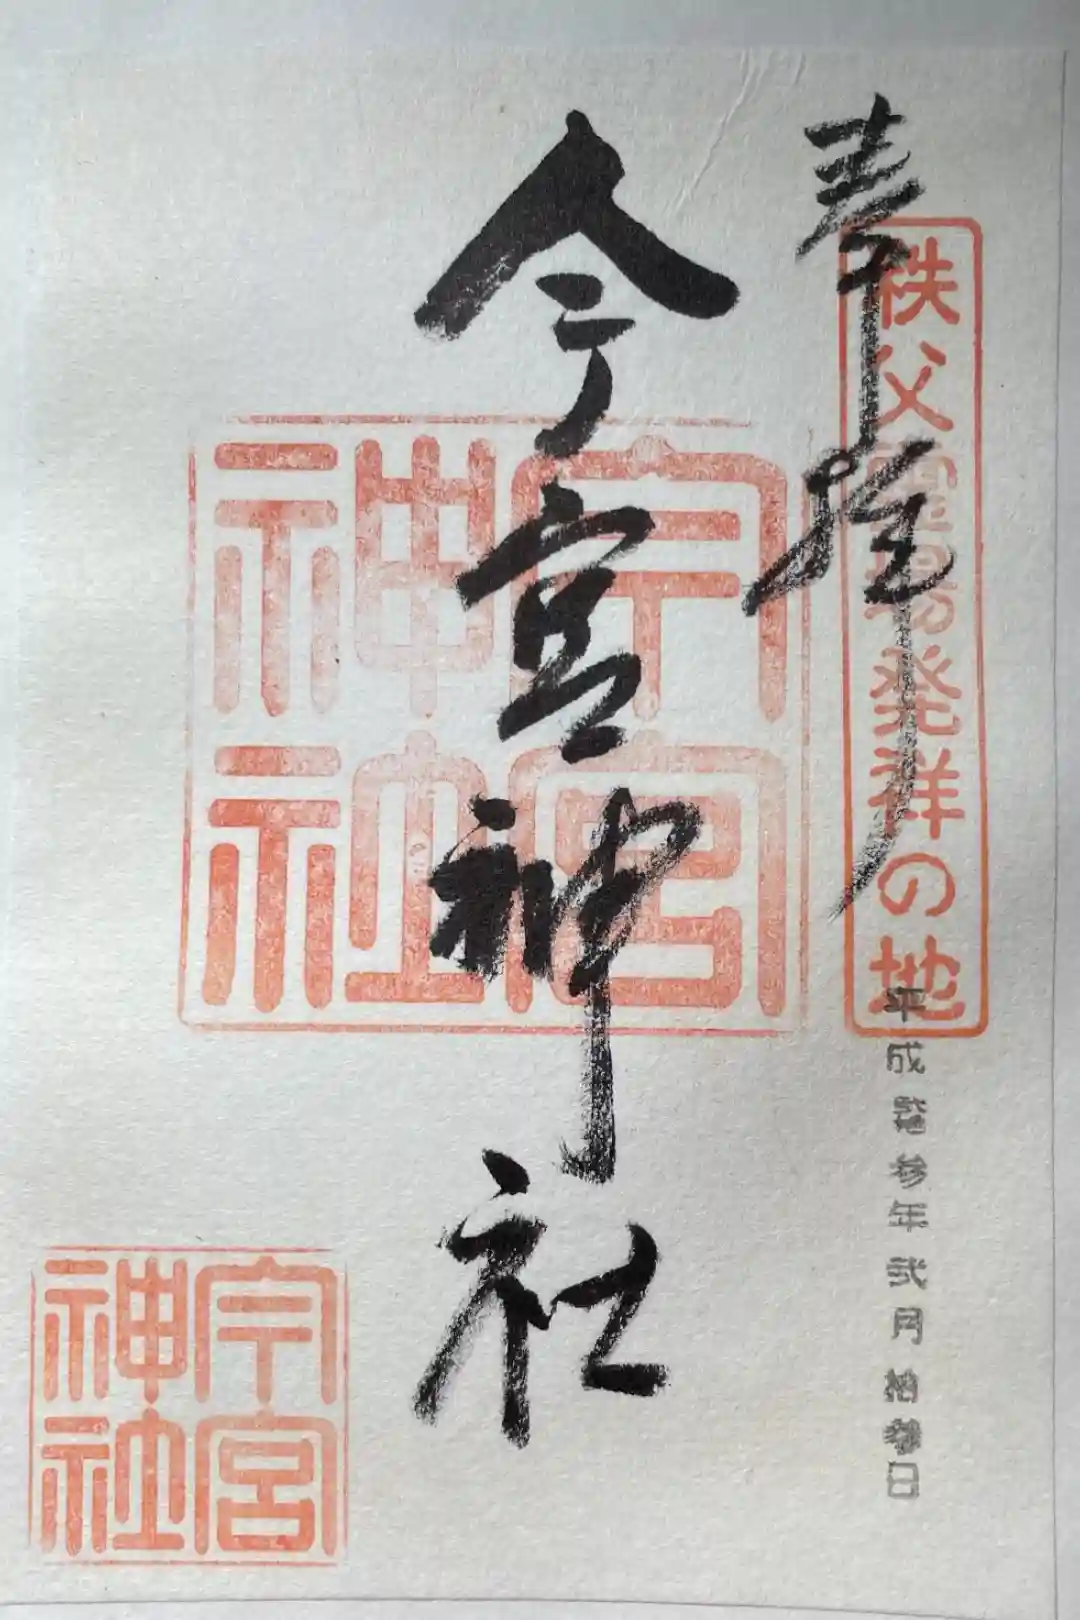 奉拝
秩父霊場発祥の地
平成参年弐月拾参日
今宮神社
今宮神社
今宮神社